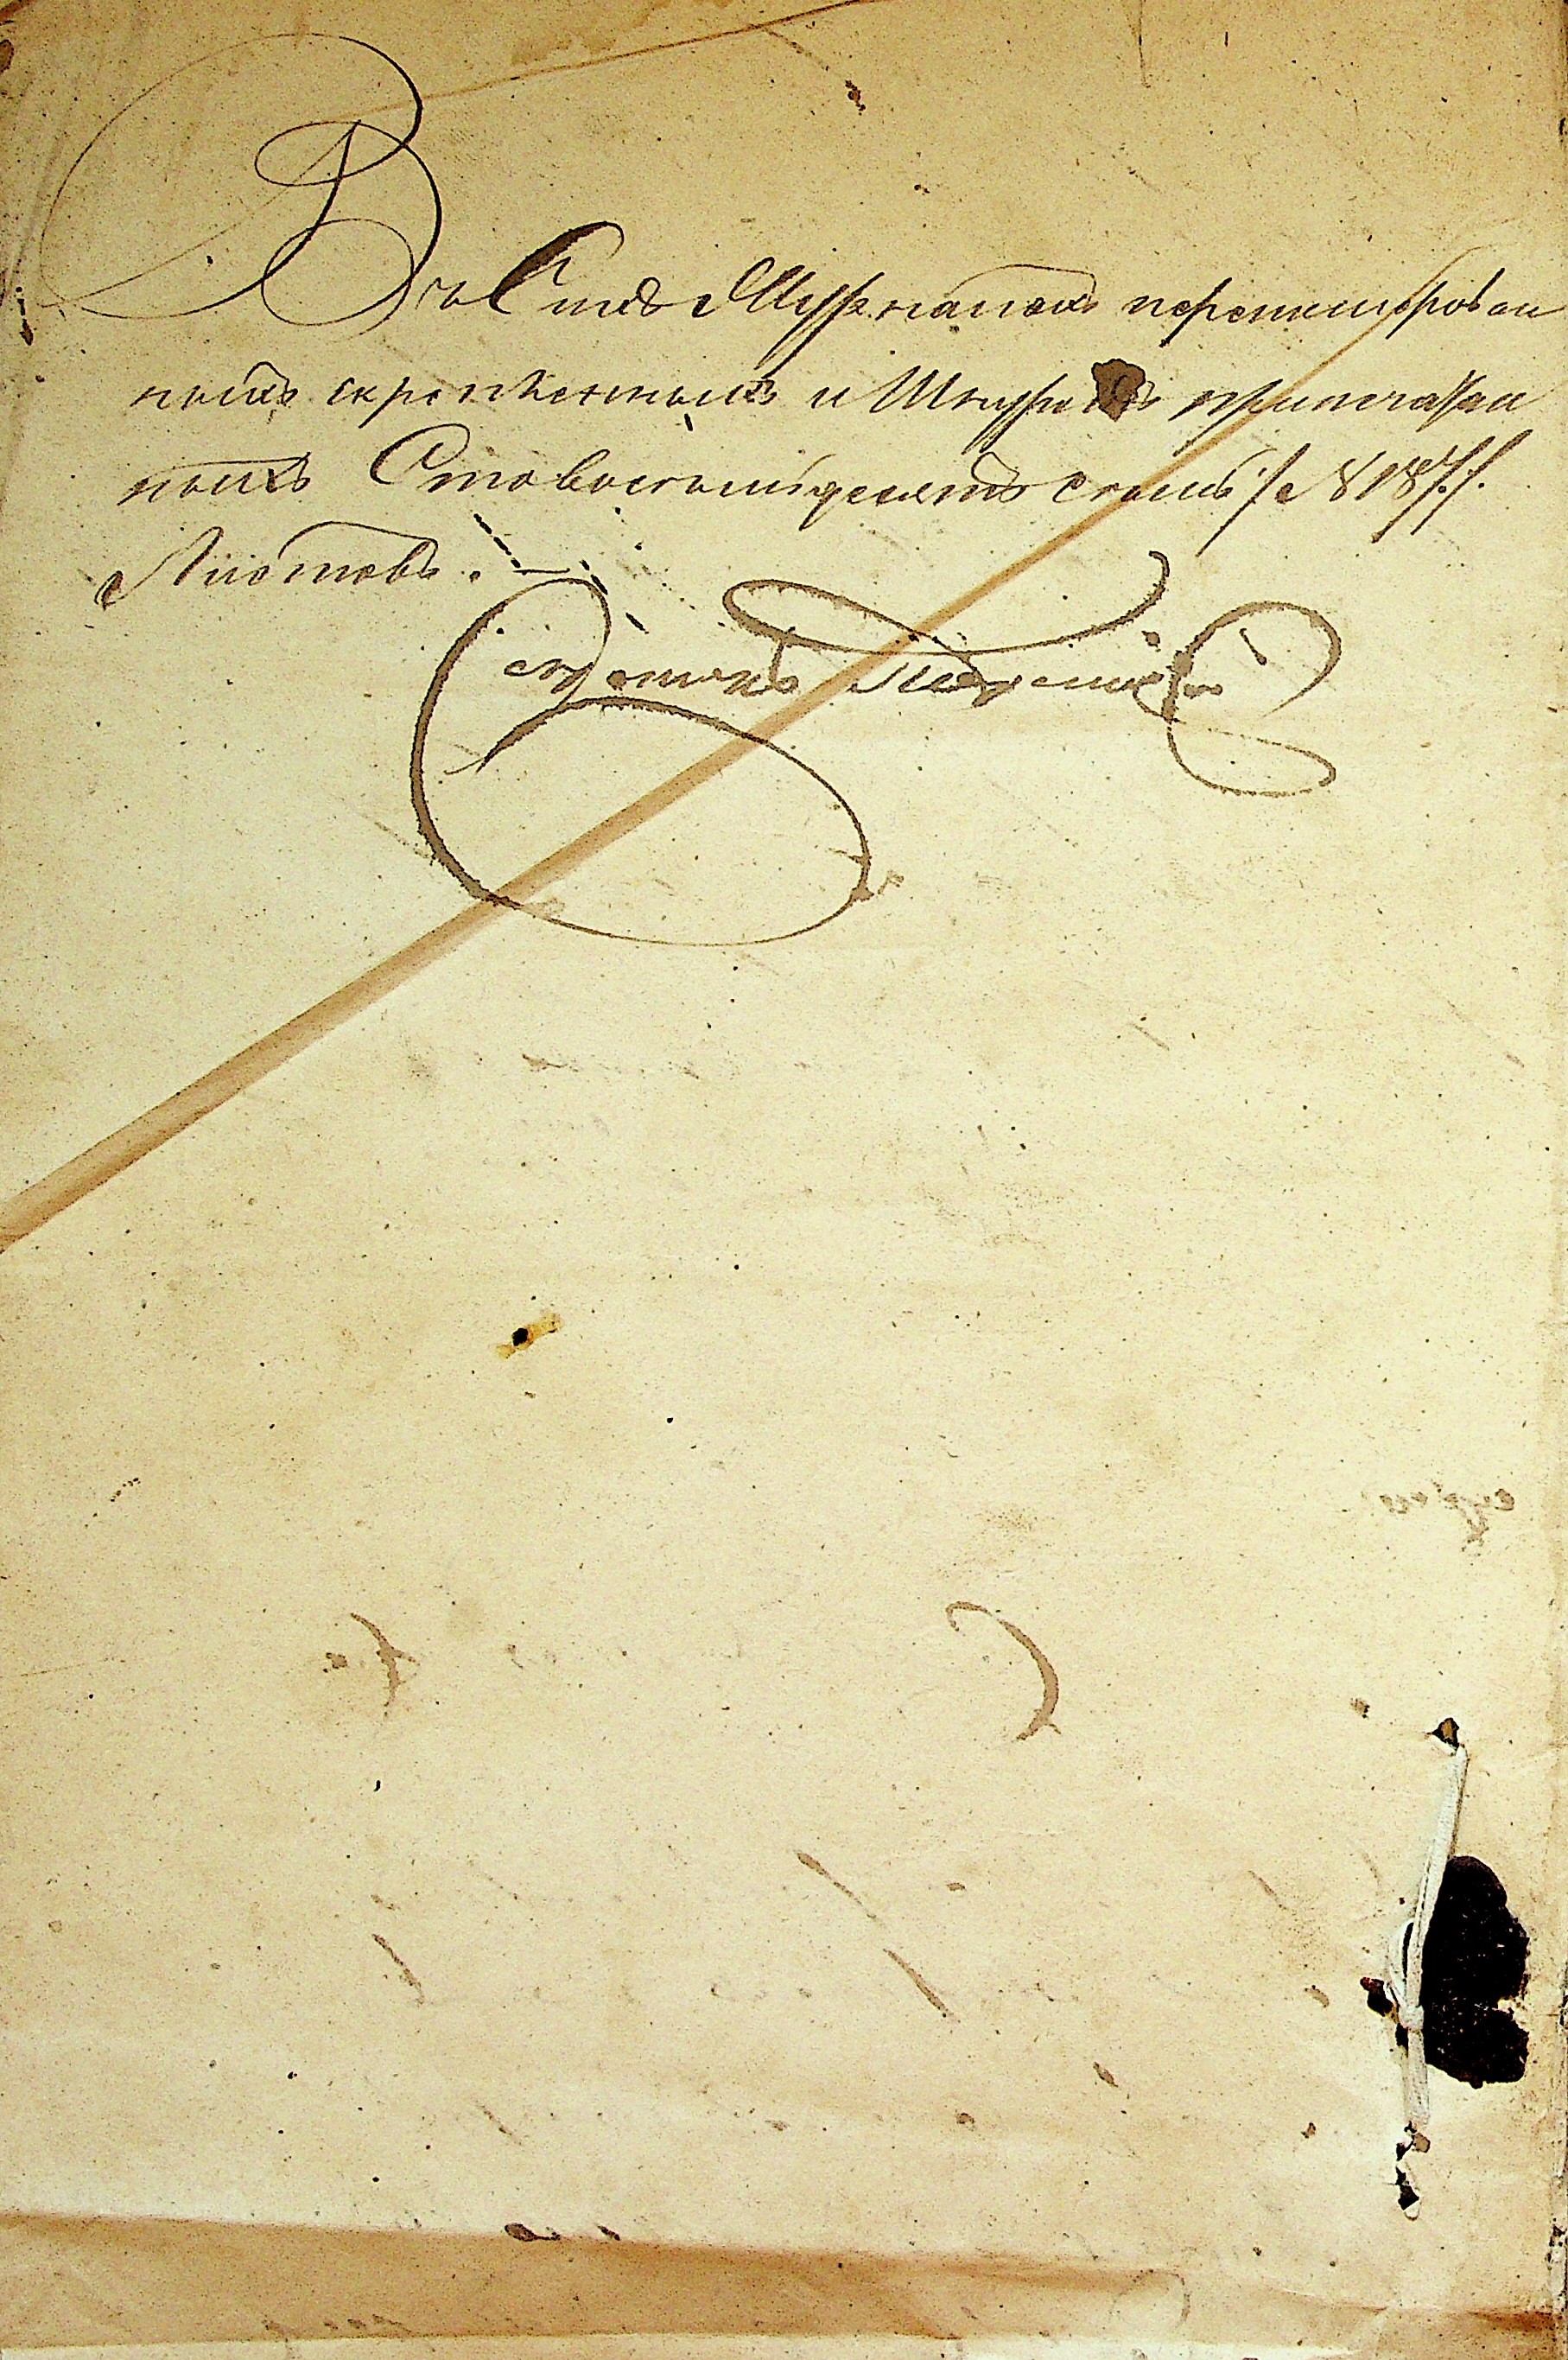 Въ Сихъ Журналахъ перенумерован
ныхъ скрепленныхъ и Шнуромъ припечатан
ныхъ Сто восемьдесятъ семь /№ 187./.
Листовъ.